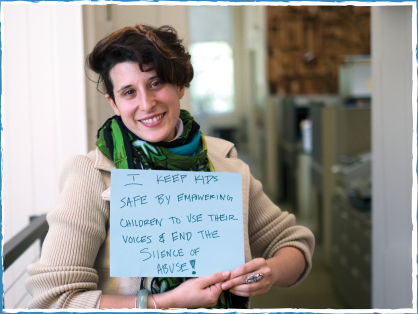 I KEEP KIDS
SAFE BY EMPOWERING
CHILDREN TO USE THEIR
VOICES & END THE
SILENCE OF
ABUSE!